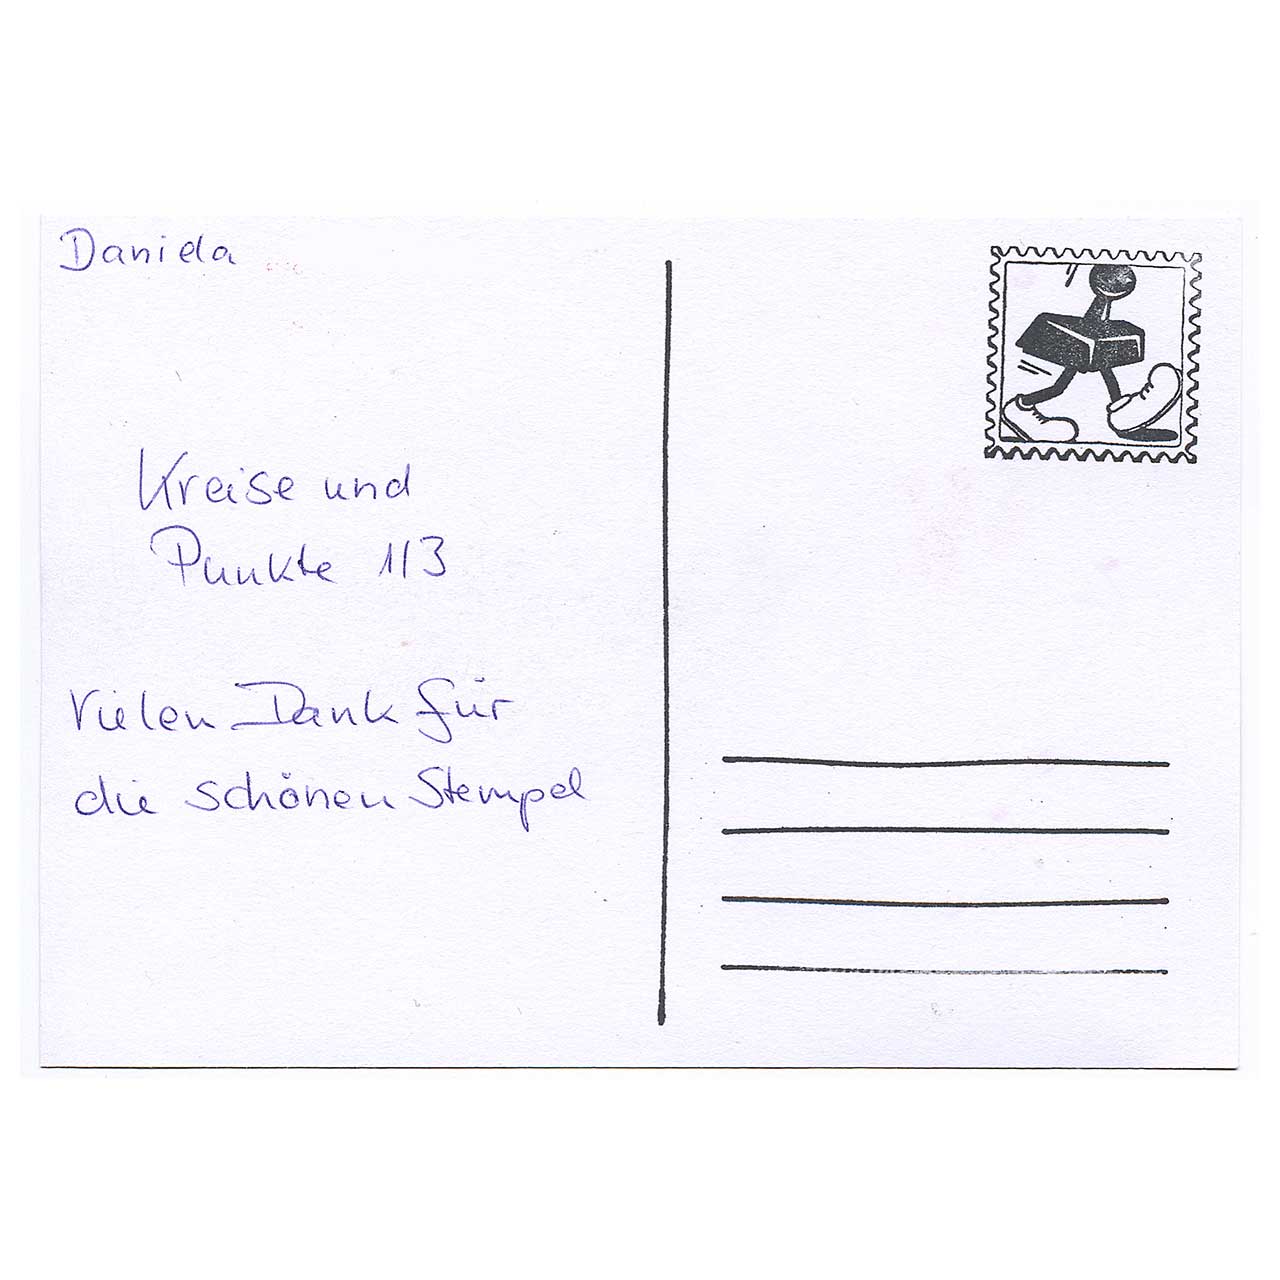 Daniela
Kreise und
Punkte 1/3
Vielen Dank für
die schönen Stempel